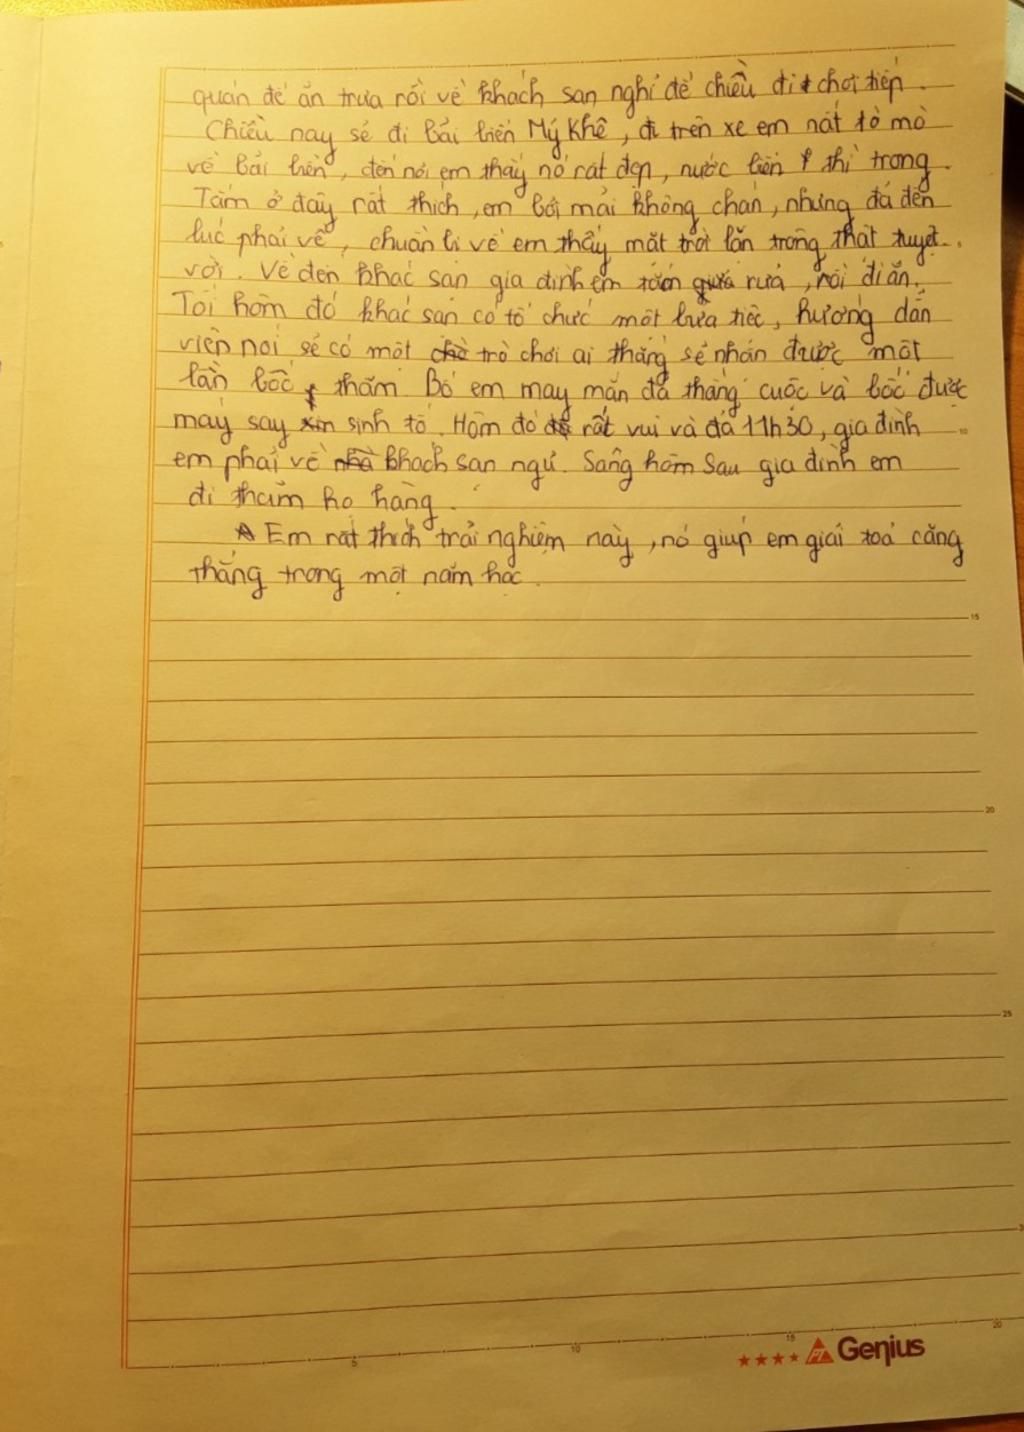 quán để ăn trưa rồi về khách sạn nghỉ để chiều đi chơi tiếp.
Chiều nay sẽ đi bãi biển Mỹ Khê, đi trên xe em rất tò mò
về bãi biển, đến nơi em thấy nó rất đẹp, nước biển thì trong.
Tắm ở đây rất thích, em bơi mãi không chán, nhưng đã đến
lúc phải về, chuẩn bị về em thấy mặt trời lặn trông thật tuyệt
vời. Về đến khác sạn gia đình em rửa, rồi đi ăn.
Tối hôm đó khác sạn có tổ chức một bữa tiệc, hướng dẫn
viên nói sẽ có một trò chơi ai thắng sẽ nhận được một
lần bốc thăm. Bố em may mắn đã thắng cuộc và bốc được
máy say sinh tố. Hôm đó rất vui và đã 11h30, gia đình
em phải về khách sạn ngủ. Sáng hôm sau gia đình em
đi thăm họ hàng.
Em rất thích trải nghiệm này, nó giúp em giải toả căng
thẳng trong một năm học.
5
10
15
20
10
15
20
25
★★★★ Genius